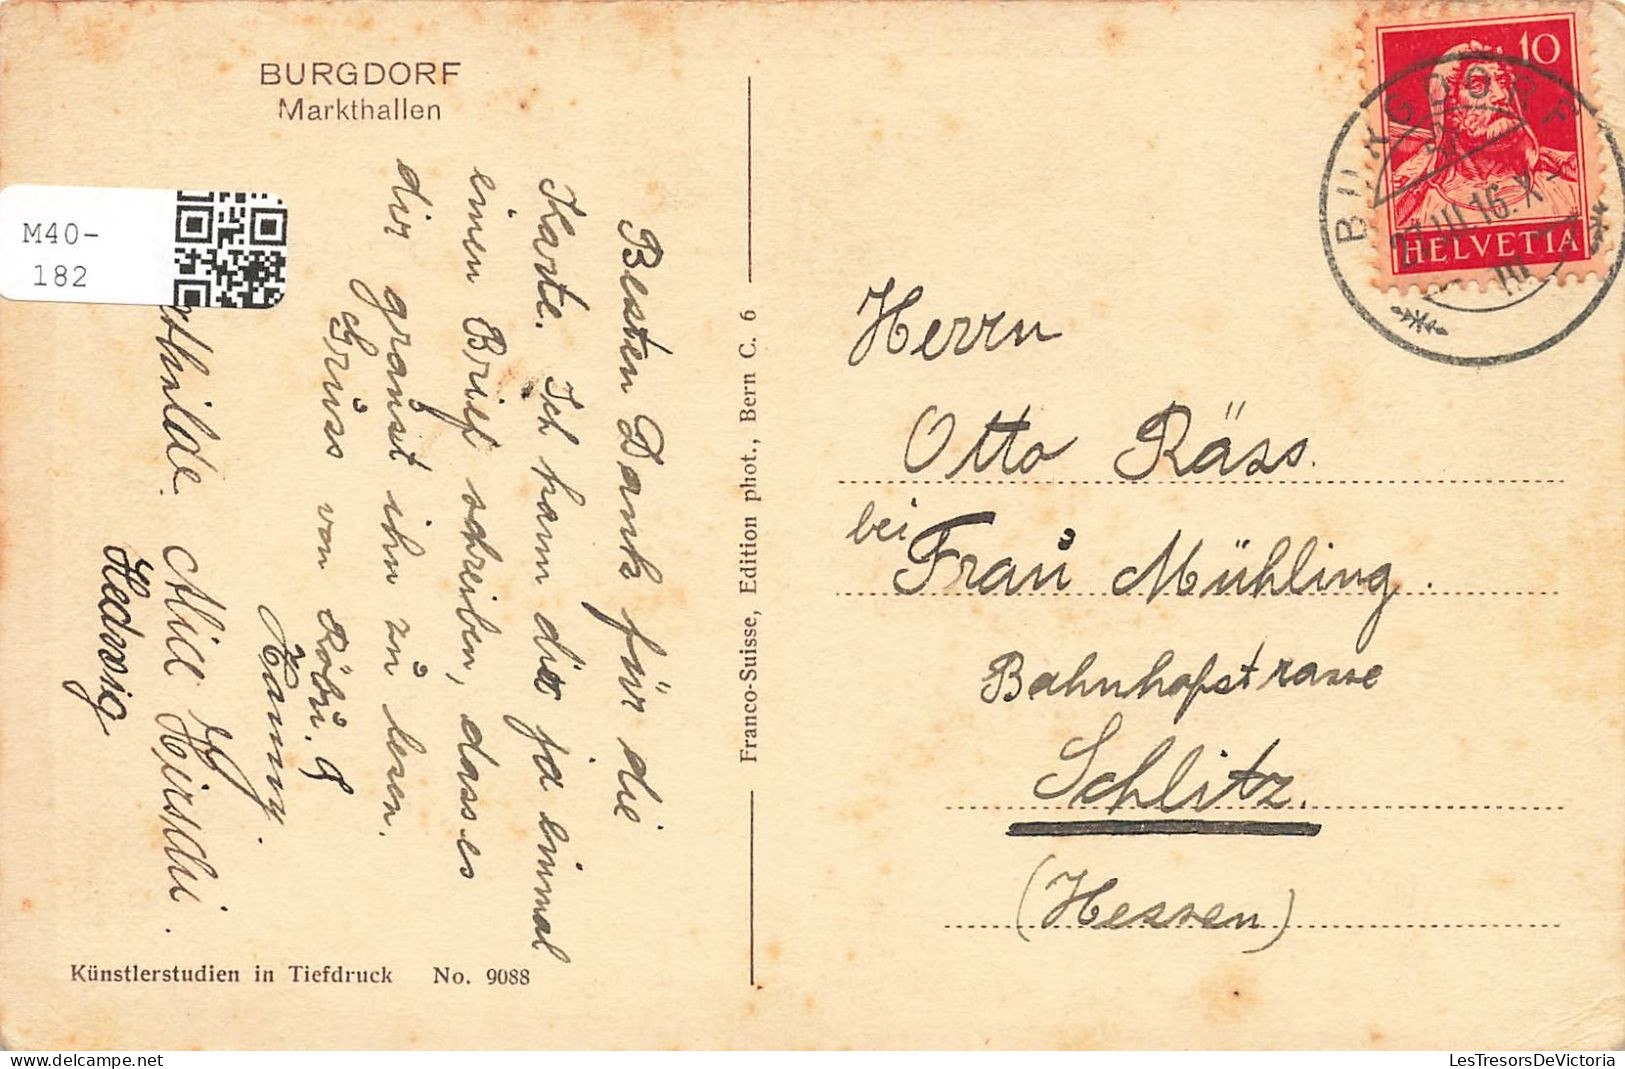 BURGDORF
Markthallen
M40-
182
Besten Dank für die
Karte. Ich kann dir ja einmal
einen Brief schreiben, dass es
dir graust ihn zu lesen.
Gruss von Röbi. G
Hanny.
thilde. Alice Hirschi.
Hedwig
Künstlerstudien in Tiefdruck No. 9088
Franco-Suisse, Edition phot., Bern C. 6
10
HELVETIA
BURGDORF
Herrn
Otto Räss.
bei Frau Mühling.
Bahnhofstrasse
Schlitz.
(Hessen)
LesTresorsDeVictoria